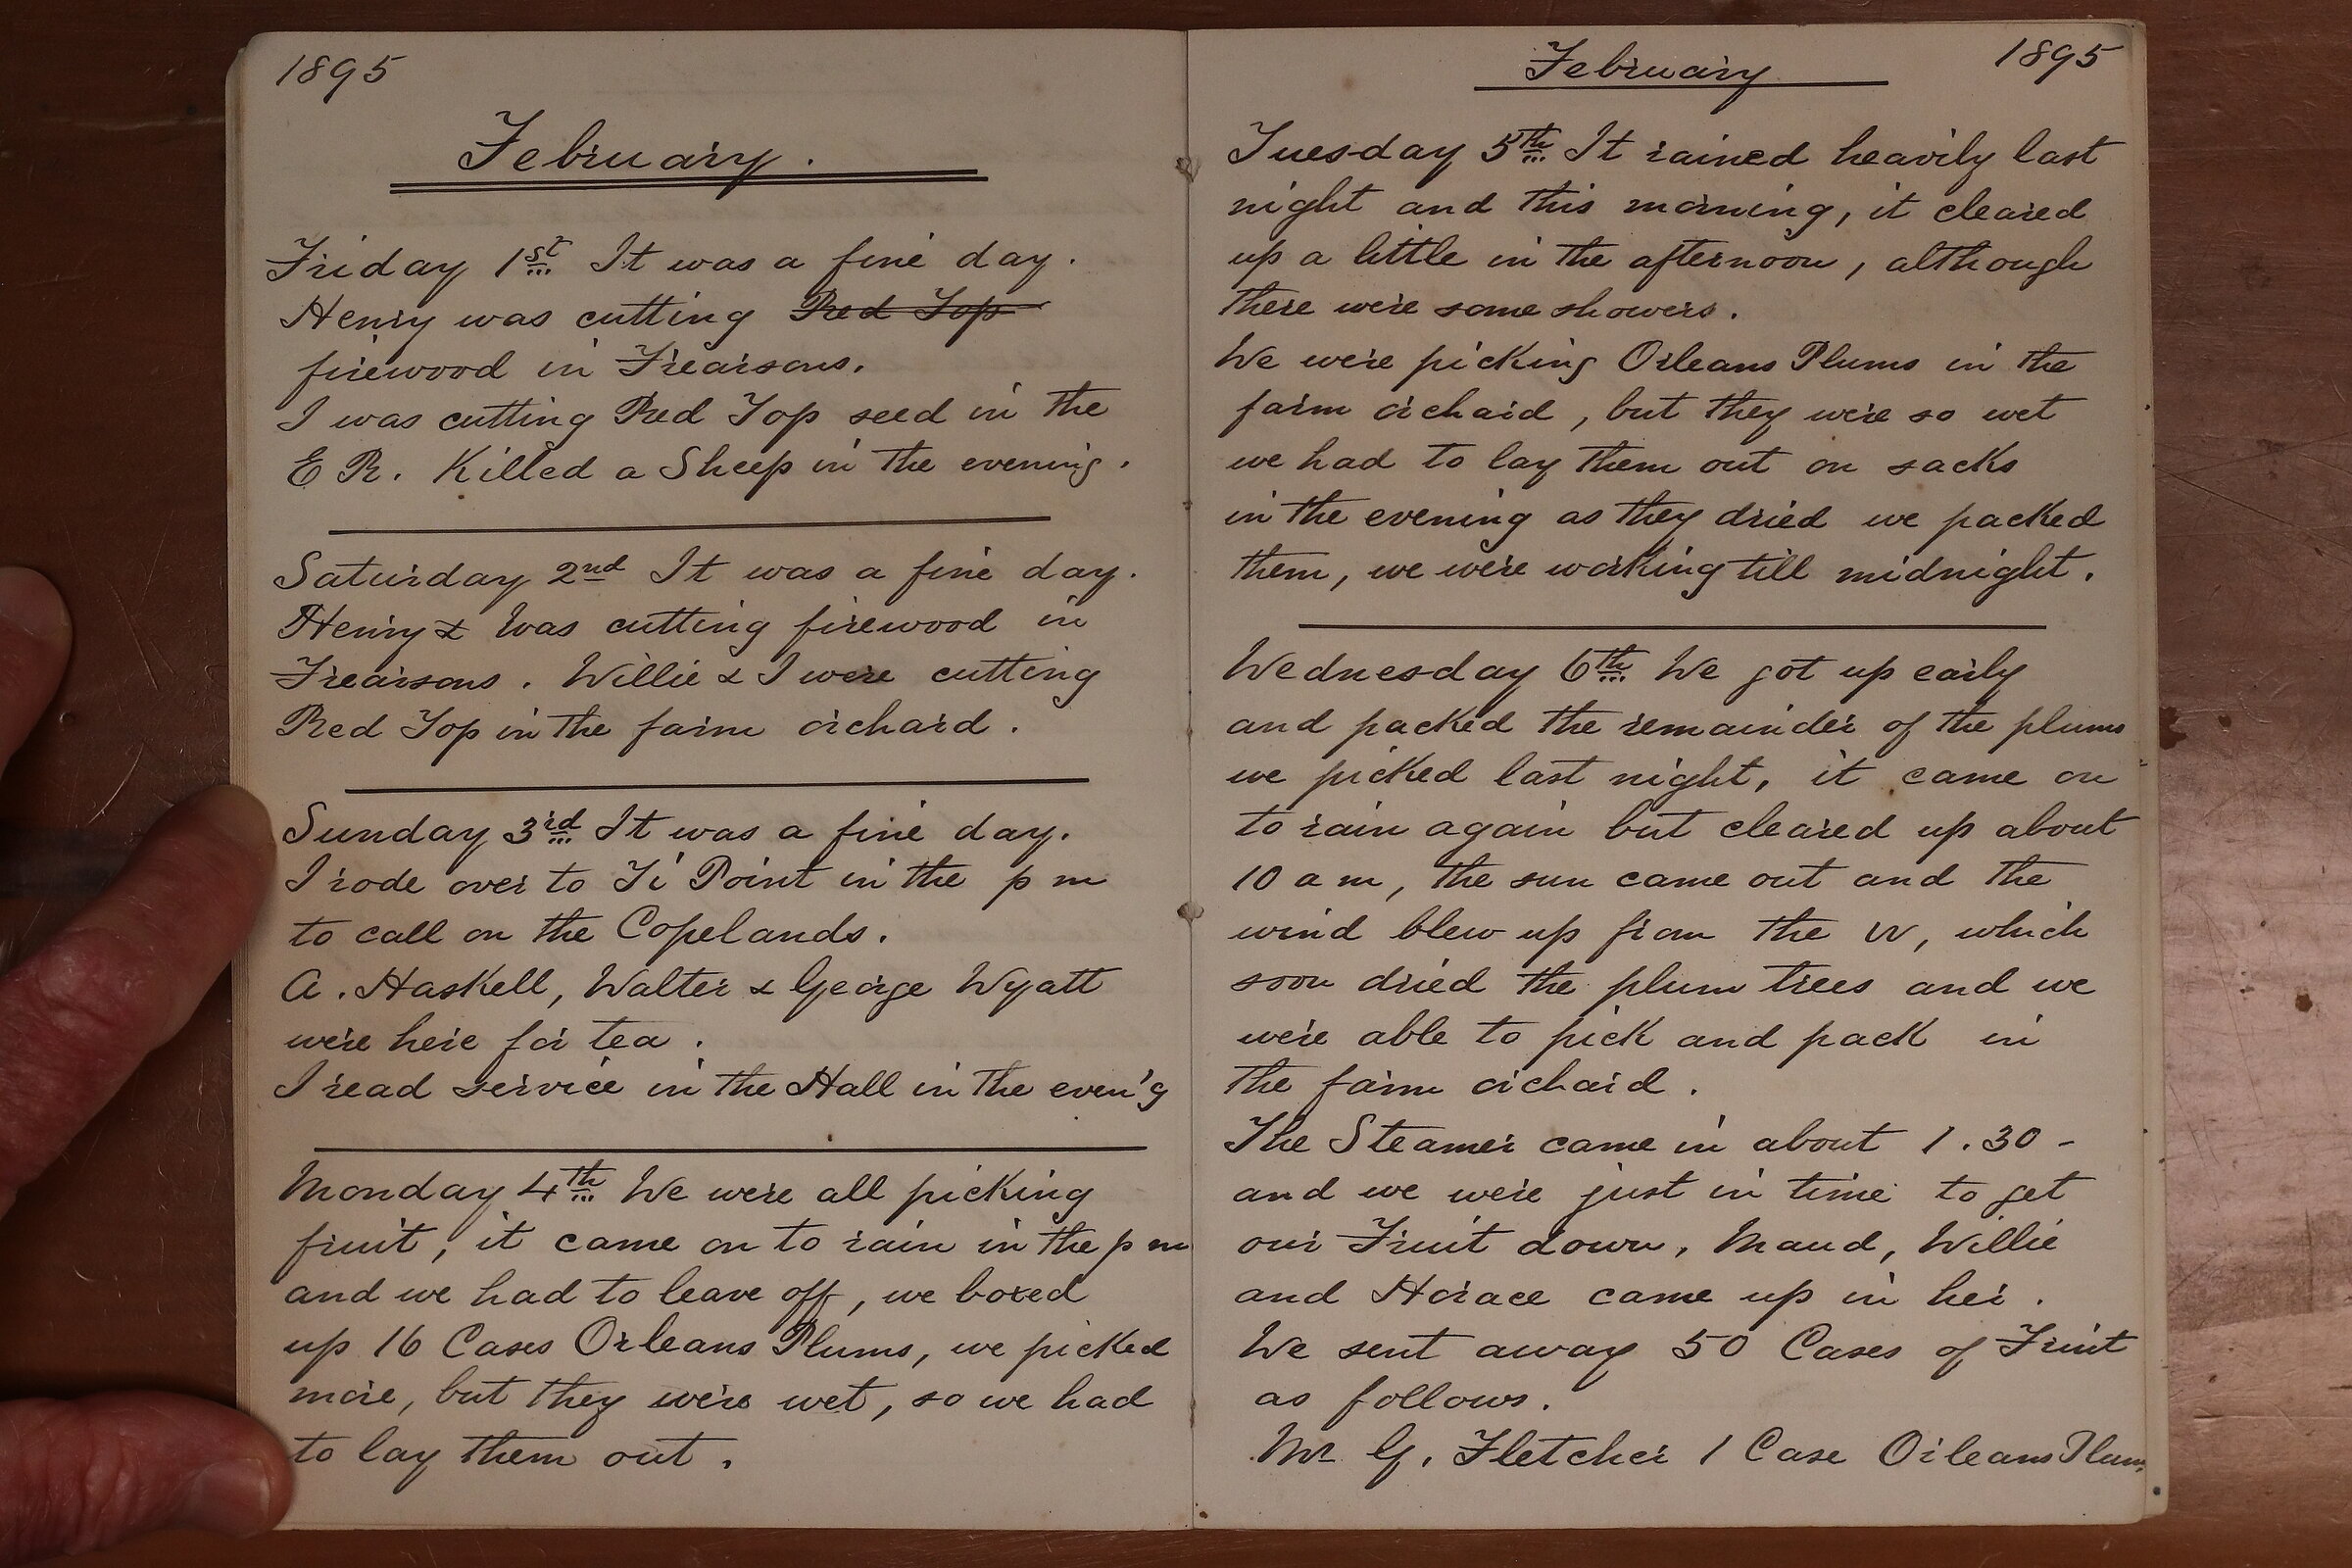 1895
February.
Friday 1st It was a fine day.
Henry was cutting Red Top
firewood in Frearsons.
I was cutting Red Top seed in the
E R. Killed a Sheep in the evening.
Saturday 2nd It was a fine day.
Henry & was cutting firewood in
Frearsons. Willie & I were cutting
Red Top in the farm orchard.
Sunday 3rd It was a fine day.
I rode over to Ti Point in the p m
to call on the Copelands.
A. Haskell, Walter & George Wyatt
were here for tea.
I read service in the Hall in the even'g
Monday 4th We were all picking
fruit, it came on to rain in the p m
and we had to leave off, we boxed
up 16 Cases Orleans Plums, we picked
more, but they were wet, so we had
to lay them out.
February 1895
Tuesday 5th It rained heavily last
night and this morning, it cleared
up a little in the afternoon, although
there were some showers.
We were picking Orleans Plums in the
farm orchard, but they were so wet
we had to lay them out on sacks
in the evening as they dried we packed
them, we were working till midnight.
Wednesday 6th We got up early
and packed the remainder of the plums
we picked last night, it came on
to rain again but cleared up about
10 a m, the sun came out and the
wind blew up from the W, which
soon dried the plum trees and we
were able to pick and pack in
the farm orchard.
The Steamer came in about 1.30 -
and we were just in time to get
our Fruit down, Maud, Willie
and Horace came up in her.
We sent away 50 Cases of Fruit
as follows.
Mr G. Fletcher 1 Case Orleans Plum